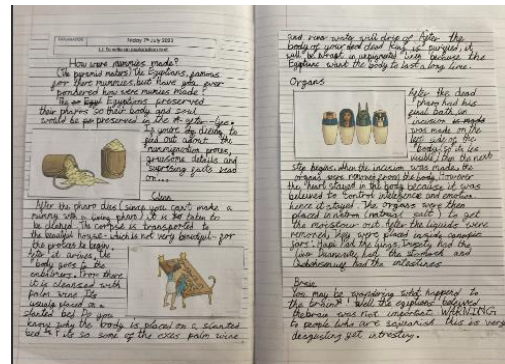 Friday 7th July 2023
L.I. To write an explanation text
How were mummies made?
The Egyptians, famous
for there mummies, but have you ever
pondered how were mumies made?
The Egyptians preserved
their pharos so their body and soul
would be preserved in the after-life.
If you're dieing to
find out about the
mummification proses,
gruesome details and
surprising facts read
on...
After the pharo dies (since you can't make a
mummy with a living pharo) it is taken to
be cleaned. The corpse is transported to
the beautiful house - which is not very beautiful - for
the process to begin.
After it arrives, the
body goes to the
embalmers. From there
it is cleansed with
palm wine. Its
usually placed on a
slanted bed. Do you
know why the body is placed on a slanted
bed? It's so some of the exces palm wine
and river water will drip off. After the
body of your dead dead king is purified, it
will be wrapt in linen because the
Egyptians want the body to last a long time.
Organs
After the dead
pharo had his
final bath, an
incision is made
was made on the
left side of the
body so it is
visible then the next
step begins. When the incision was made, the
organs were removed from the body. However
the heart stayed in the body because it was
believed to control intelligence and emotion
hence it stayed. The organs were then
placed in natron (natural salt) to get
the moisture out. After the liquids were
removed, they were placed inside canopic
jars. Hapi had the lungs, Imsety had the
liver Duamutef had the stomach and
Qebehsenuef had the intestines
Brain
You may be wondering what happend to
the brain? Well the egyptians believed
the brain was not important. WARNING
to people who are squeamish this is very
disgusting yet intresting.